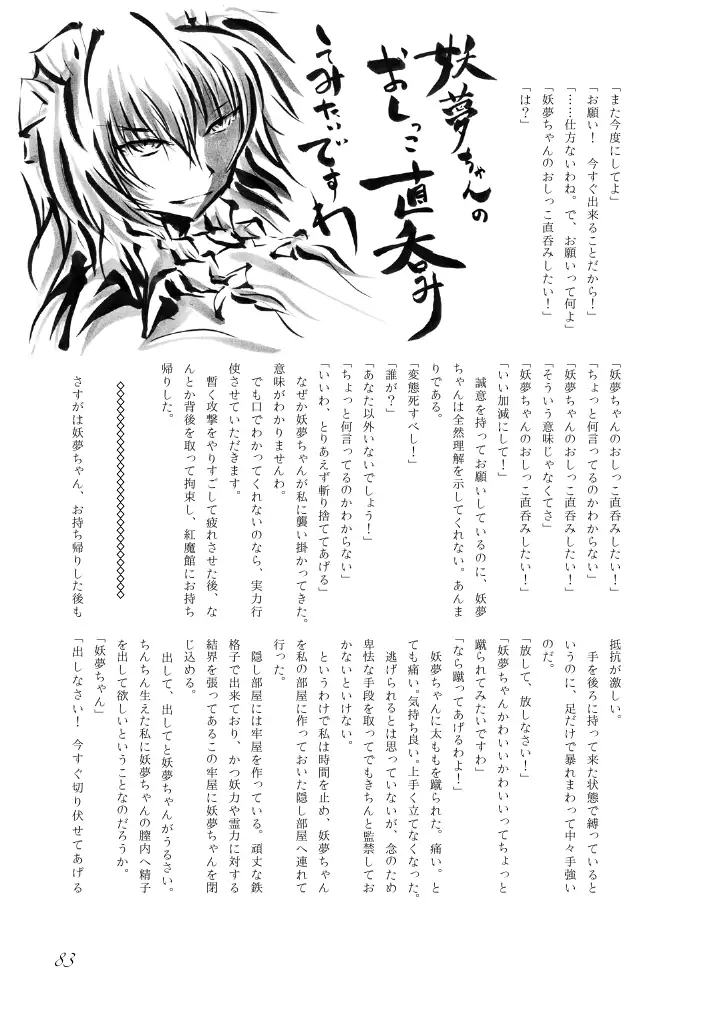 妖夢ちゃんの
おしっこ直呑み
してみたいですわ
「また今度にしてよ」
「お願い！　今すぐ出来ることだから！」
「……仕方ないわね。で、お願いって何よ」
「妖夢ちゃんのおしっこ直呑みしたい！」
「は？」
「妖夢ちゃんのおしっこ直呑みしたい！」
「ちょっと何言ってるのかわからない」
「妖夢ちゃんのおしっこ直呑みしたい！」
「そういう意味じゃなくてさ」
「妖夢ちゃんのおしっこ直呑みしたい！」
「いい加減にして！」
　誠意を持ってお願いしているのに、妖夢
ちゃんは全然理解を示してくれない。あんま
りである。
「変態死すべし！」
「誰が？」
「あなた以外いないでしょう！」
「ちょっと何言ってるのかわからない」
「いいわ、とりあえず斬り捨ててあげる」
　なぜか妖夢ちゃんが私に襲い掛かってきた。
意味がわかりませんわ。
　でも口でわかってくれないのなら、実力行
使させていただきます。
　暫く攻撃をやりすごして疲れさせた後、な
んとか背後を取って拘束し、紅魔館にお持ち
帰りした。
◇◇◇◇◇◇◇◇◇◇◇◇◇◇◇◇◇◇◇
　さすがは妖夢ちゃん、お持ち帰りした後も
抵抗が激しい。
　手を後ろに持って来た状態で縛っていると
いうのに、足だけで暴れまわって中々手強い
のだ。
「放して、放しなさい！」
「妖夢ちゃんかわいいかわいいってちょっと
蹴られてみたいですわ」
「なら蹴ってあげるわよ！」
　妖夢ちゃんに太ももを蹴られた。痛い。と
ても痛い。気持ち良い。上手く立てなくなった。
　逃げられるとは思っていないが、念のため
卑怯な手段を取ってでもきちんと監禁してお
かないといけない。
　というわけで私は時間を止め、妖夢ちゃん
を私の部屋に作っておいた隠し部屋へ連れて
行った。
　隠し部屋には牢屋を作っている。頑丈な鉄
格子で出来ており、かつ妖力や霊力に対する
結界を張ってあるこの牢屋に妖夢ちゃんを閉
じ込める。
　出して、出してと妖夢ちゃんがうるさい。
ちんちん生えた私に妖夢ちゃんの膣内へ精子
を出して欲しいということなのだろうか。
「妖夢ちゃん」
「出しなさい！　今すぐ切り伏せてあげる
83